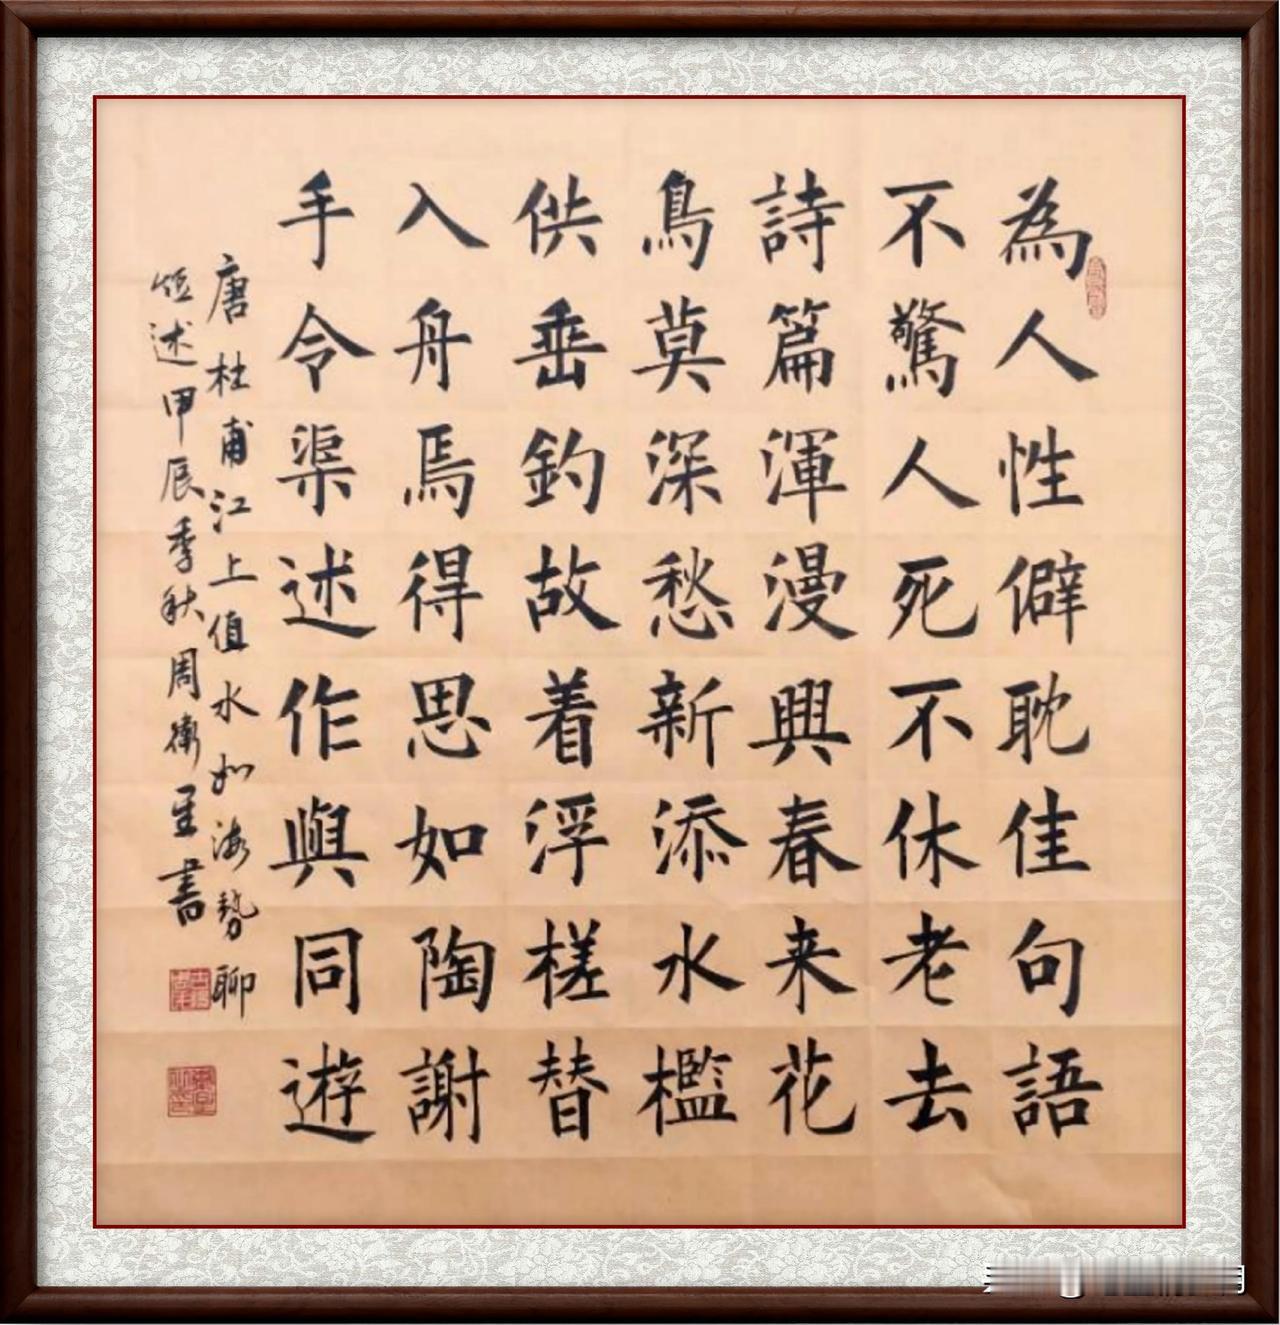 為人性僻耽佳句語
不驚人死不休老去
詩篇渾漫興春来花
鳥莫深愁新添水檻
供垂釣故着浮槎替
入舟焉得思如陶謝
手令渠述作與同遊
唐杜甫江上值水如海勢聊
短述甲辰季秋周衛星書